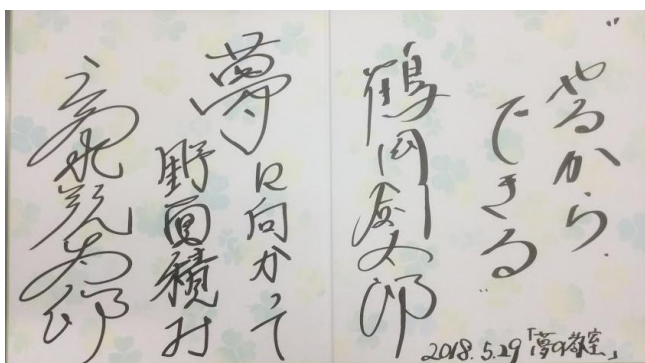 "やるから
できる"
鶴岡剣太郎
2018.5.29「夢の教室」
夢に向かって
野面積み